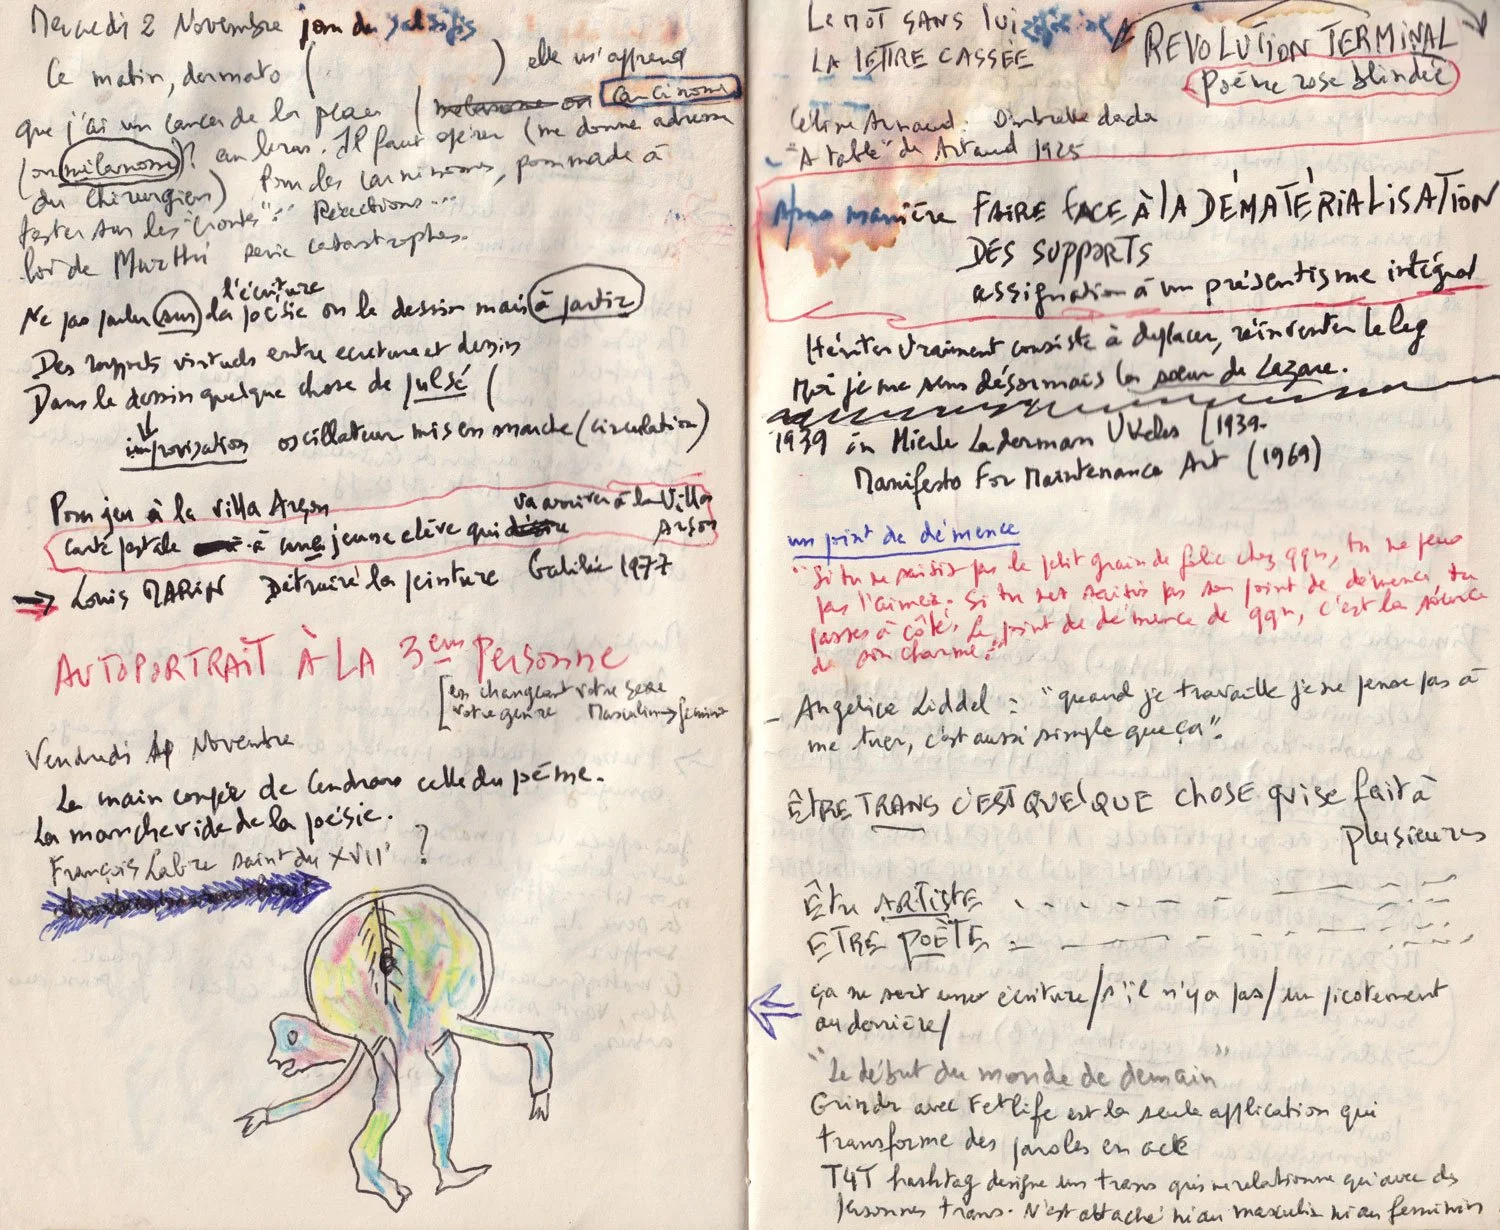 Mercredi 2 Novembre jour du salsifis
Ce matin, dermato ( ) elle m'apprend
que j'ai un cancer de la peau ( melanome ou carcinome
(ou mélanome)? au bras. Il faut opérer (me donne adresse
du chirurgien) Pour les carcinomes, pommade à
tester sur les "croûtes". Réactions...
loi de Murphy série catastrophes.
l'écriture
Ne pas parler sur la poésie ou le dessin mais à partir
Des rapports virtuels entre ecriture et dessin
Dans le dessin quelque chose de pulsé (
improvisation oscillateur mis en marche (circulation)
Pour jeu à la villa Arson
carte postale à une jeune elève qui désire va arriver à la Villa Arson
→ Louis MARIN Détruire la peinture Galilée 1977
AUTOPORTRAIT À LA 3eme Personne
[en changeant votre sexe
votre genre Masculin → feminin
Vendredi 4 Novembre
La main coupée de Cendrars celle du poème.
La manche vide de la poésie.
François Labre saint du XVII' ?
Le MOT SANS lui
LA LETTRE CASSÉE
REVOLUTION TERMINAL
Poème rose blindée
Céline Arnauld. Ombrelle dada
"A table" de Artaud 1925
manière FAIRE FACE À LA DÉMATÉRIALISATION
DES SUPPORTS
assignation à un présentisme intégral
Hériter vraiment consiste à déplacer, réinventer le leg
Moi je me sens désormais la sœur de Lazare.
1939 in Mierle Laderman Ukeles [1939-
Manifesto For Maintenance Art (1969)
un point de démence
"Si tu ne saisis pas le petit grain de folie chez qqn, tu ne peux
pas l'aimer. Si tu ne saisis pas son point de démence, tu
passes à côté. Le point de démence de qqn, c'est la source
de son charme."
- Angelica Liddel : "quand je travaille je ne pense pas à
me tuer, c'est aussi simple que ça".
ÊTRE TRANS C'EST QUELQUE CHOSE qui se fait à
plusieures
Être ARTISTE
ETRE POÈTE
ça ne sert une écriture/s'il n'y a pas/un picotement
au derrière/
"Le début du monde de demain"
Grindr avec Fetlife est la seule application qui
transforme des paroles en acte
T4T hashtag designe un trans qui ne relationne qu'avec des
personnes trans. N'est attaché ni au masculin ni au feminin